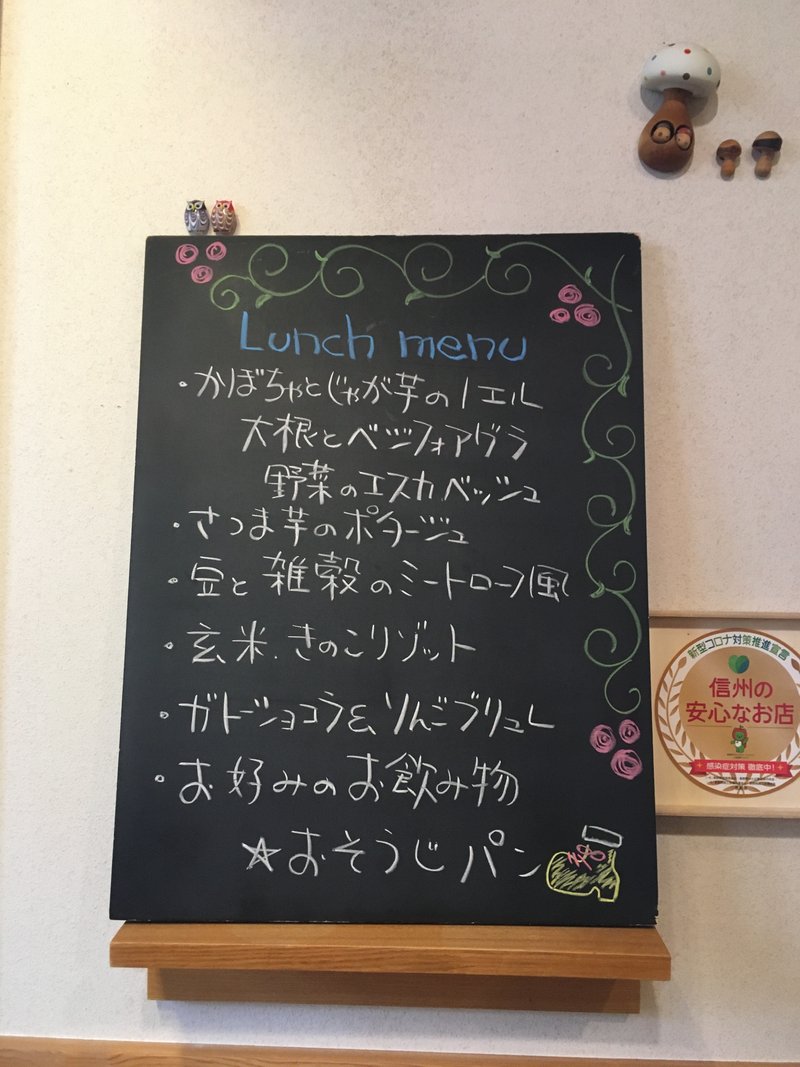 Lunch menu
・かぼちゃとじゃが芋のノエル
大根とベジフォアグラ
野菜のエスカベッシュ
・さつま芋のポタージュ
・豆と雑穀のミートローフ風
・玄米.きのこリゾット
・ガトーショコラ&りんごブリュレ
・お好みのお飲み物
☆おそうじパン
新型コロナ対策推進宣言
信州の
安心なお店
感染症対策 徹底中!